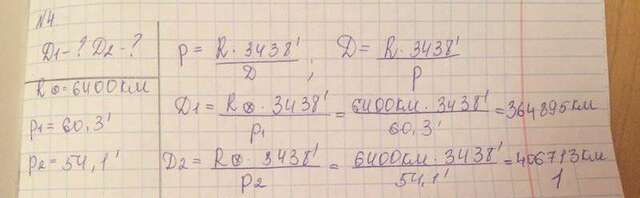 №4.
D₁-? D₂-?
R⊕=6400км
p₁=60,3'
p₂=54,1'
p = R·3438' / D ; D = R·3438' / p
D₁ = R⊕·3438' / p₁ = 6400км·3438' / 60,3' = 364895км
D₂ = R⊕·3438' / p₂ = 6400км·3438' / 54,1' = 406713км
1